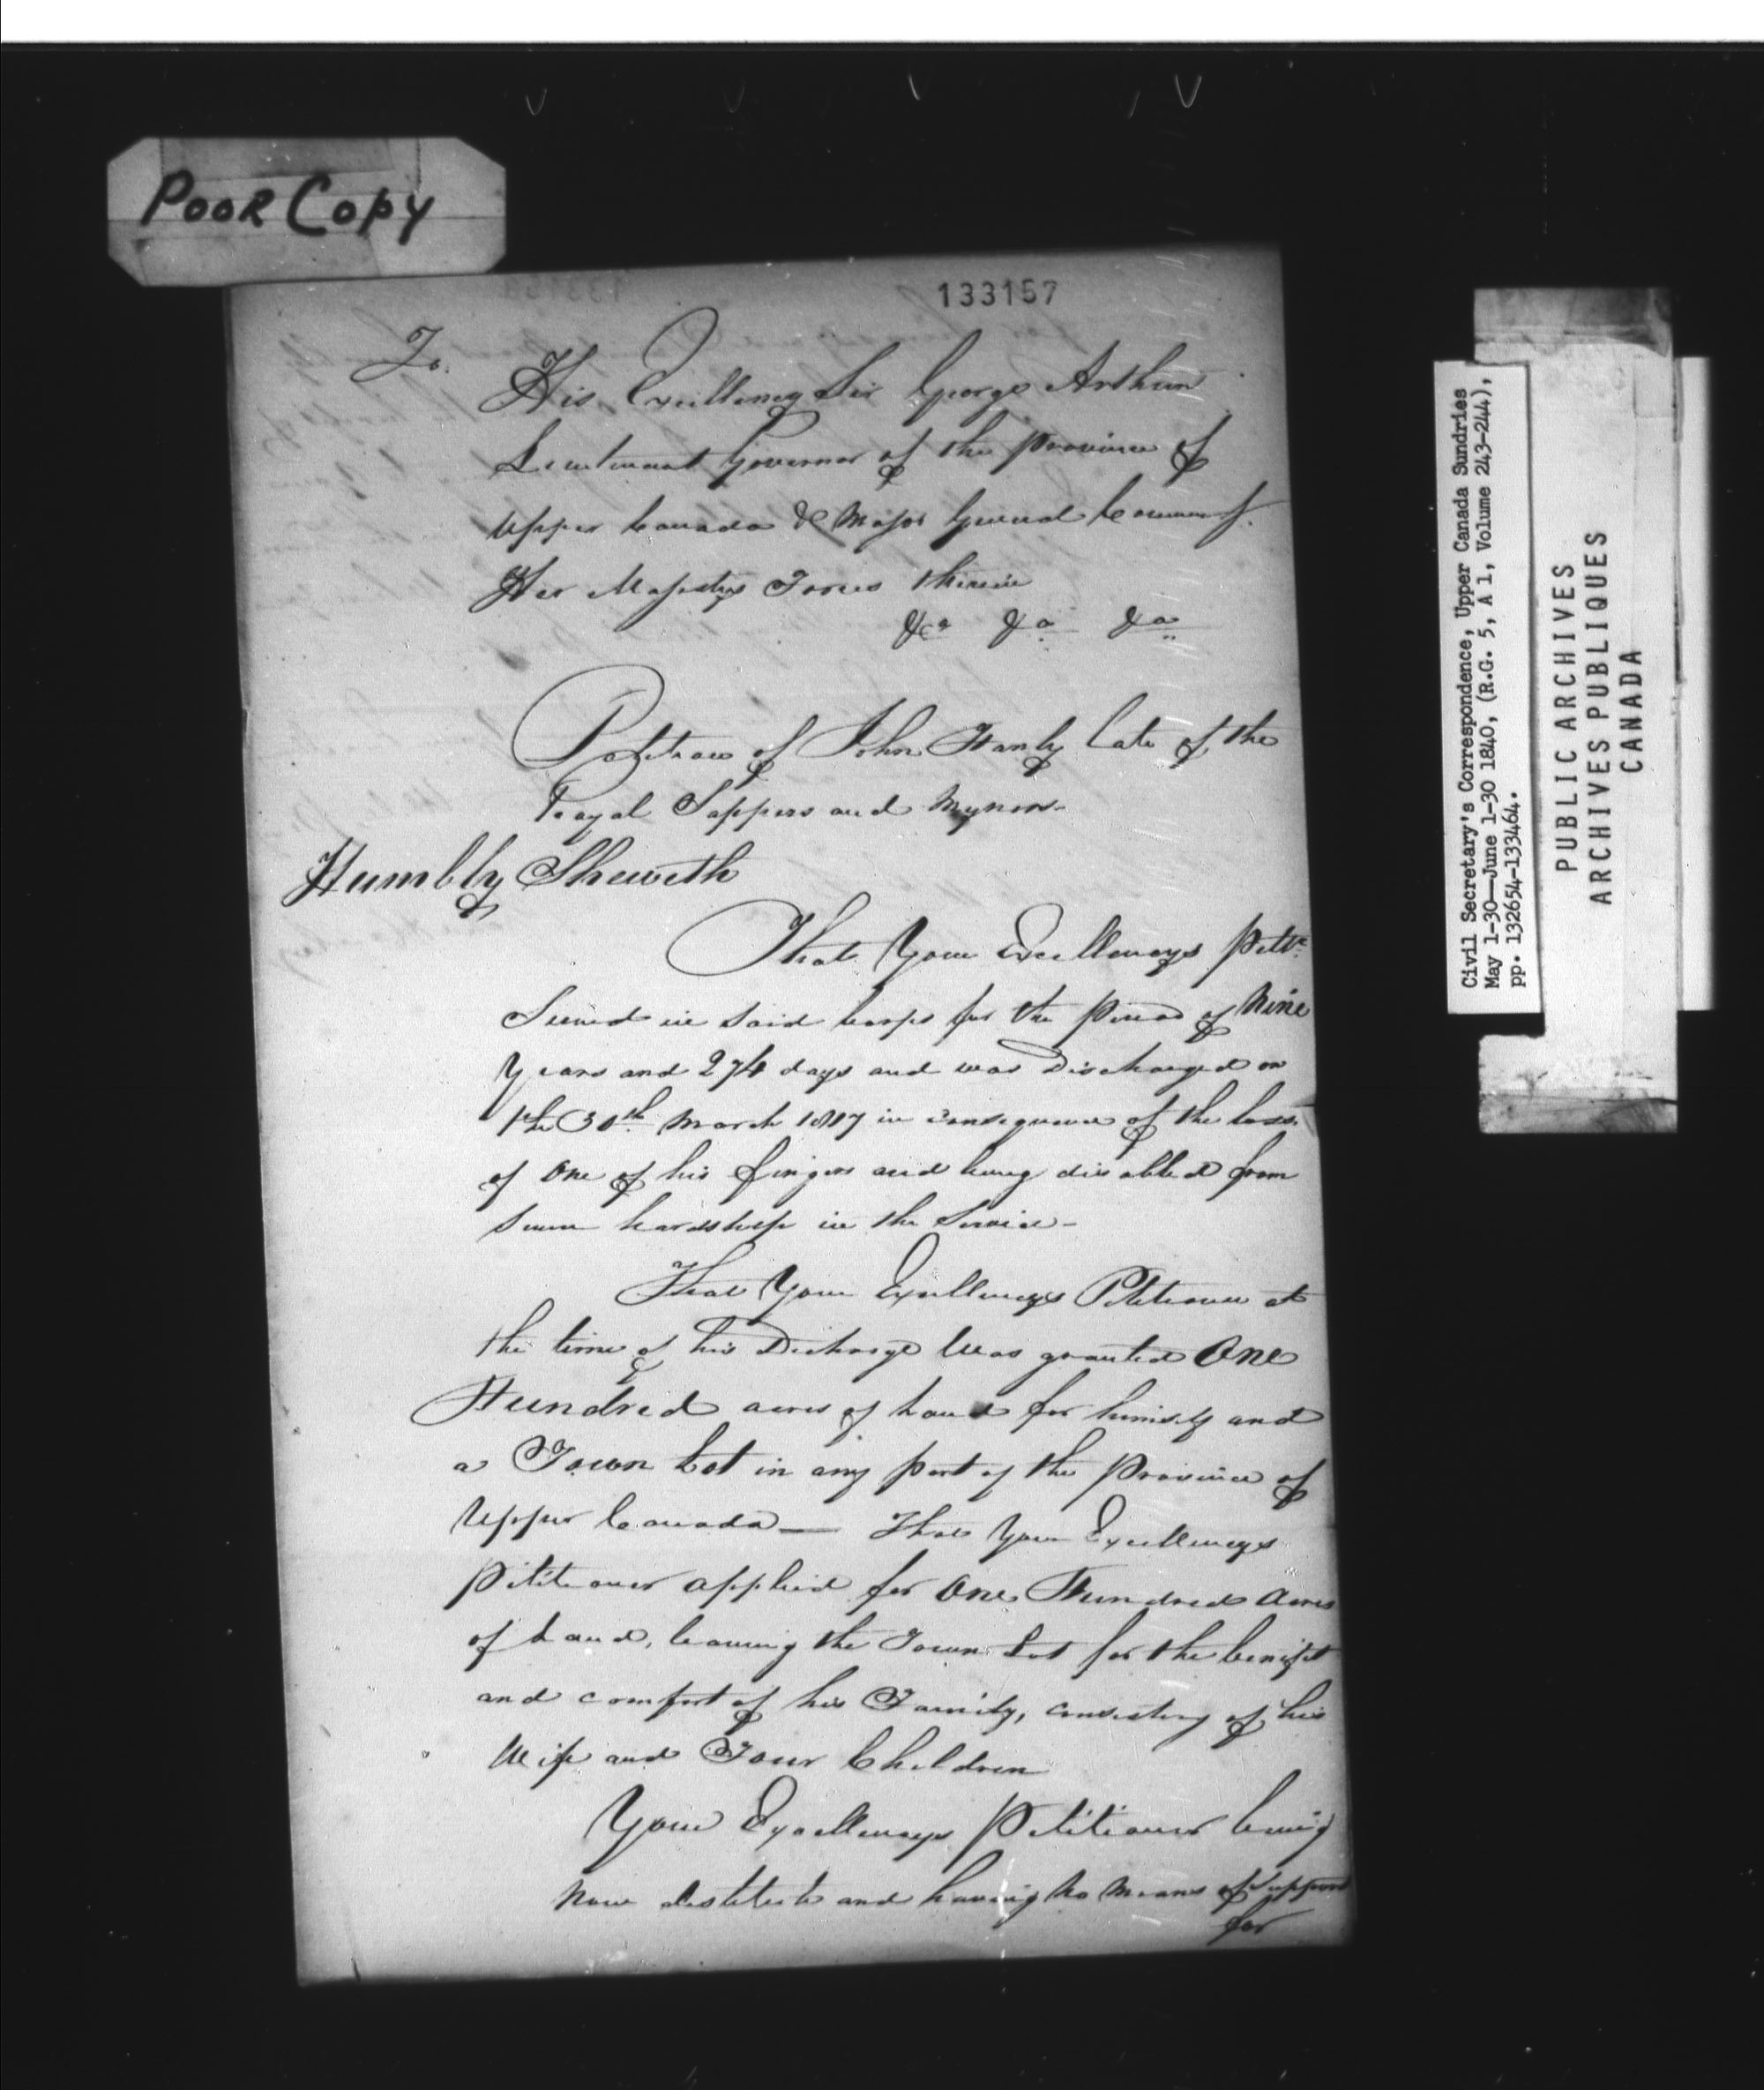 POOR COPY
133157
To.
His Excellency Sir George Arthur
Lieutenant Governor of the Province of
Upper Canada & Major General Commg.
Her Majestys Forces therein
&ca &a &a
Petition of John Hanly late of the
Royal Sappers and Myners-
Humbly Sheweth
That Your Excellencys Pettr.
Served in said Corps for the Period of Nine
Years and 274 days and was Discharged on
the 30th. March 1817 in consequence of the loss
of one of his fingers and being disabled from
severe hardship in the Service-
That Your Excellencys Petitioner at
the time of his Discharge Was granted One
Hundred acres of Land for himself and
a Town Lot in any part of the Province of
Upper Canada — That Your Excellencys
Petitioner applied for One Hundred Acres
of Land, leaving the Town Lot for the benifit
and comfort of his Family, consisting of his
Wife and Four Children
Your Excellencys Petitioner being
now destitute and having no means of support
for
Civil Secretary's Correspondence, Upper Canada Sundries
May 1-30—June 1-30 1840, (R.G. 5, A 1, Volume 243-244),
pp. 132654-133464.
PUBLIC ARCHIVES
ARCHIVES PUBLIQUES
CANADA